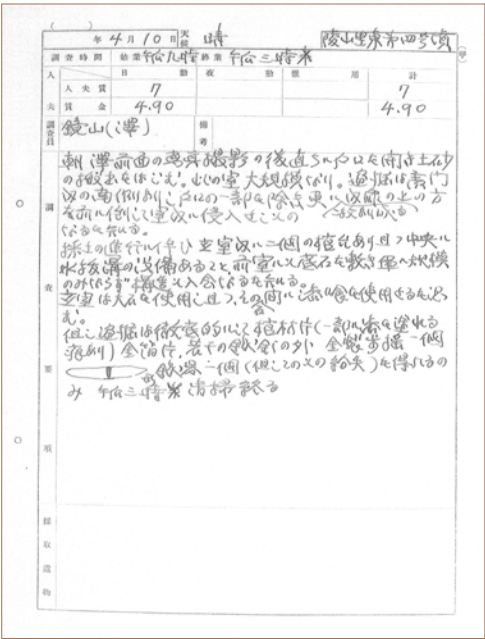 年 4月 10日 天候 晴 陵山里東第四号墳
調査時間 始業 午前九時 終業 午后三時半
人夫 日勤 夜勤 備用 計
人夫賃 7 7
賃金 4.90 4.90
調査員 鏡山(澤) 備考
調査要項
朝 澤 前面の写真撮影の後直ちに戸口を開き土砂
の搬出をはじむ。この室大規模なり。盗掘は
の南側より戸口の一部を除き
を前に倒して室内に侵入
なるを知る。
排土の進行に伴ひ玄室内に二個の棺台あり且つ中央に
水抜溝の設備あること前室にも底石を敷き
のみならず構造も入念なるを知る。
玄室は大石を使用し且つその間に漆喰を使用せるを認
む。
但し盗掘は徹底的にして棺材片(一部に漆を塗れる
)金箔片、若干の鉄釘の外 金銀歩揺一個
鉄 一個(但しこの を得たるの
み 午后三時半 清掃終る
採取遺物